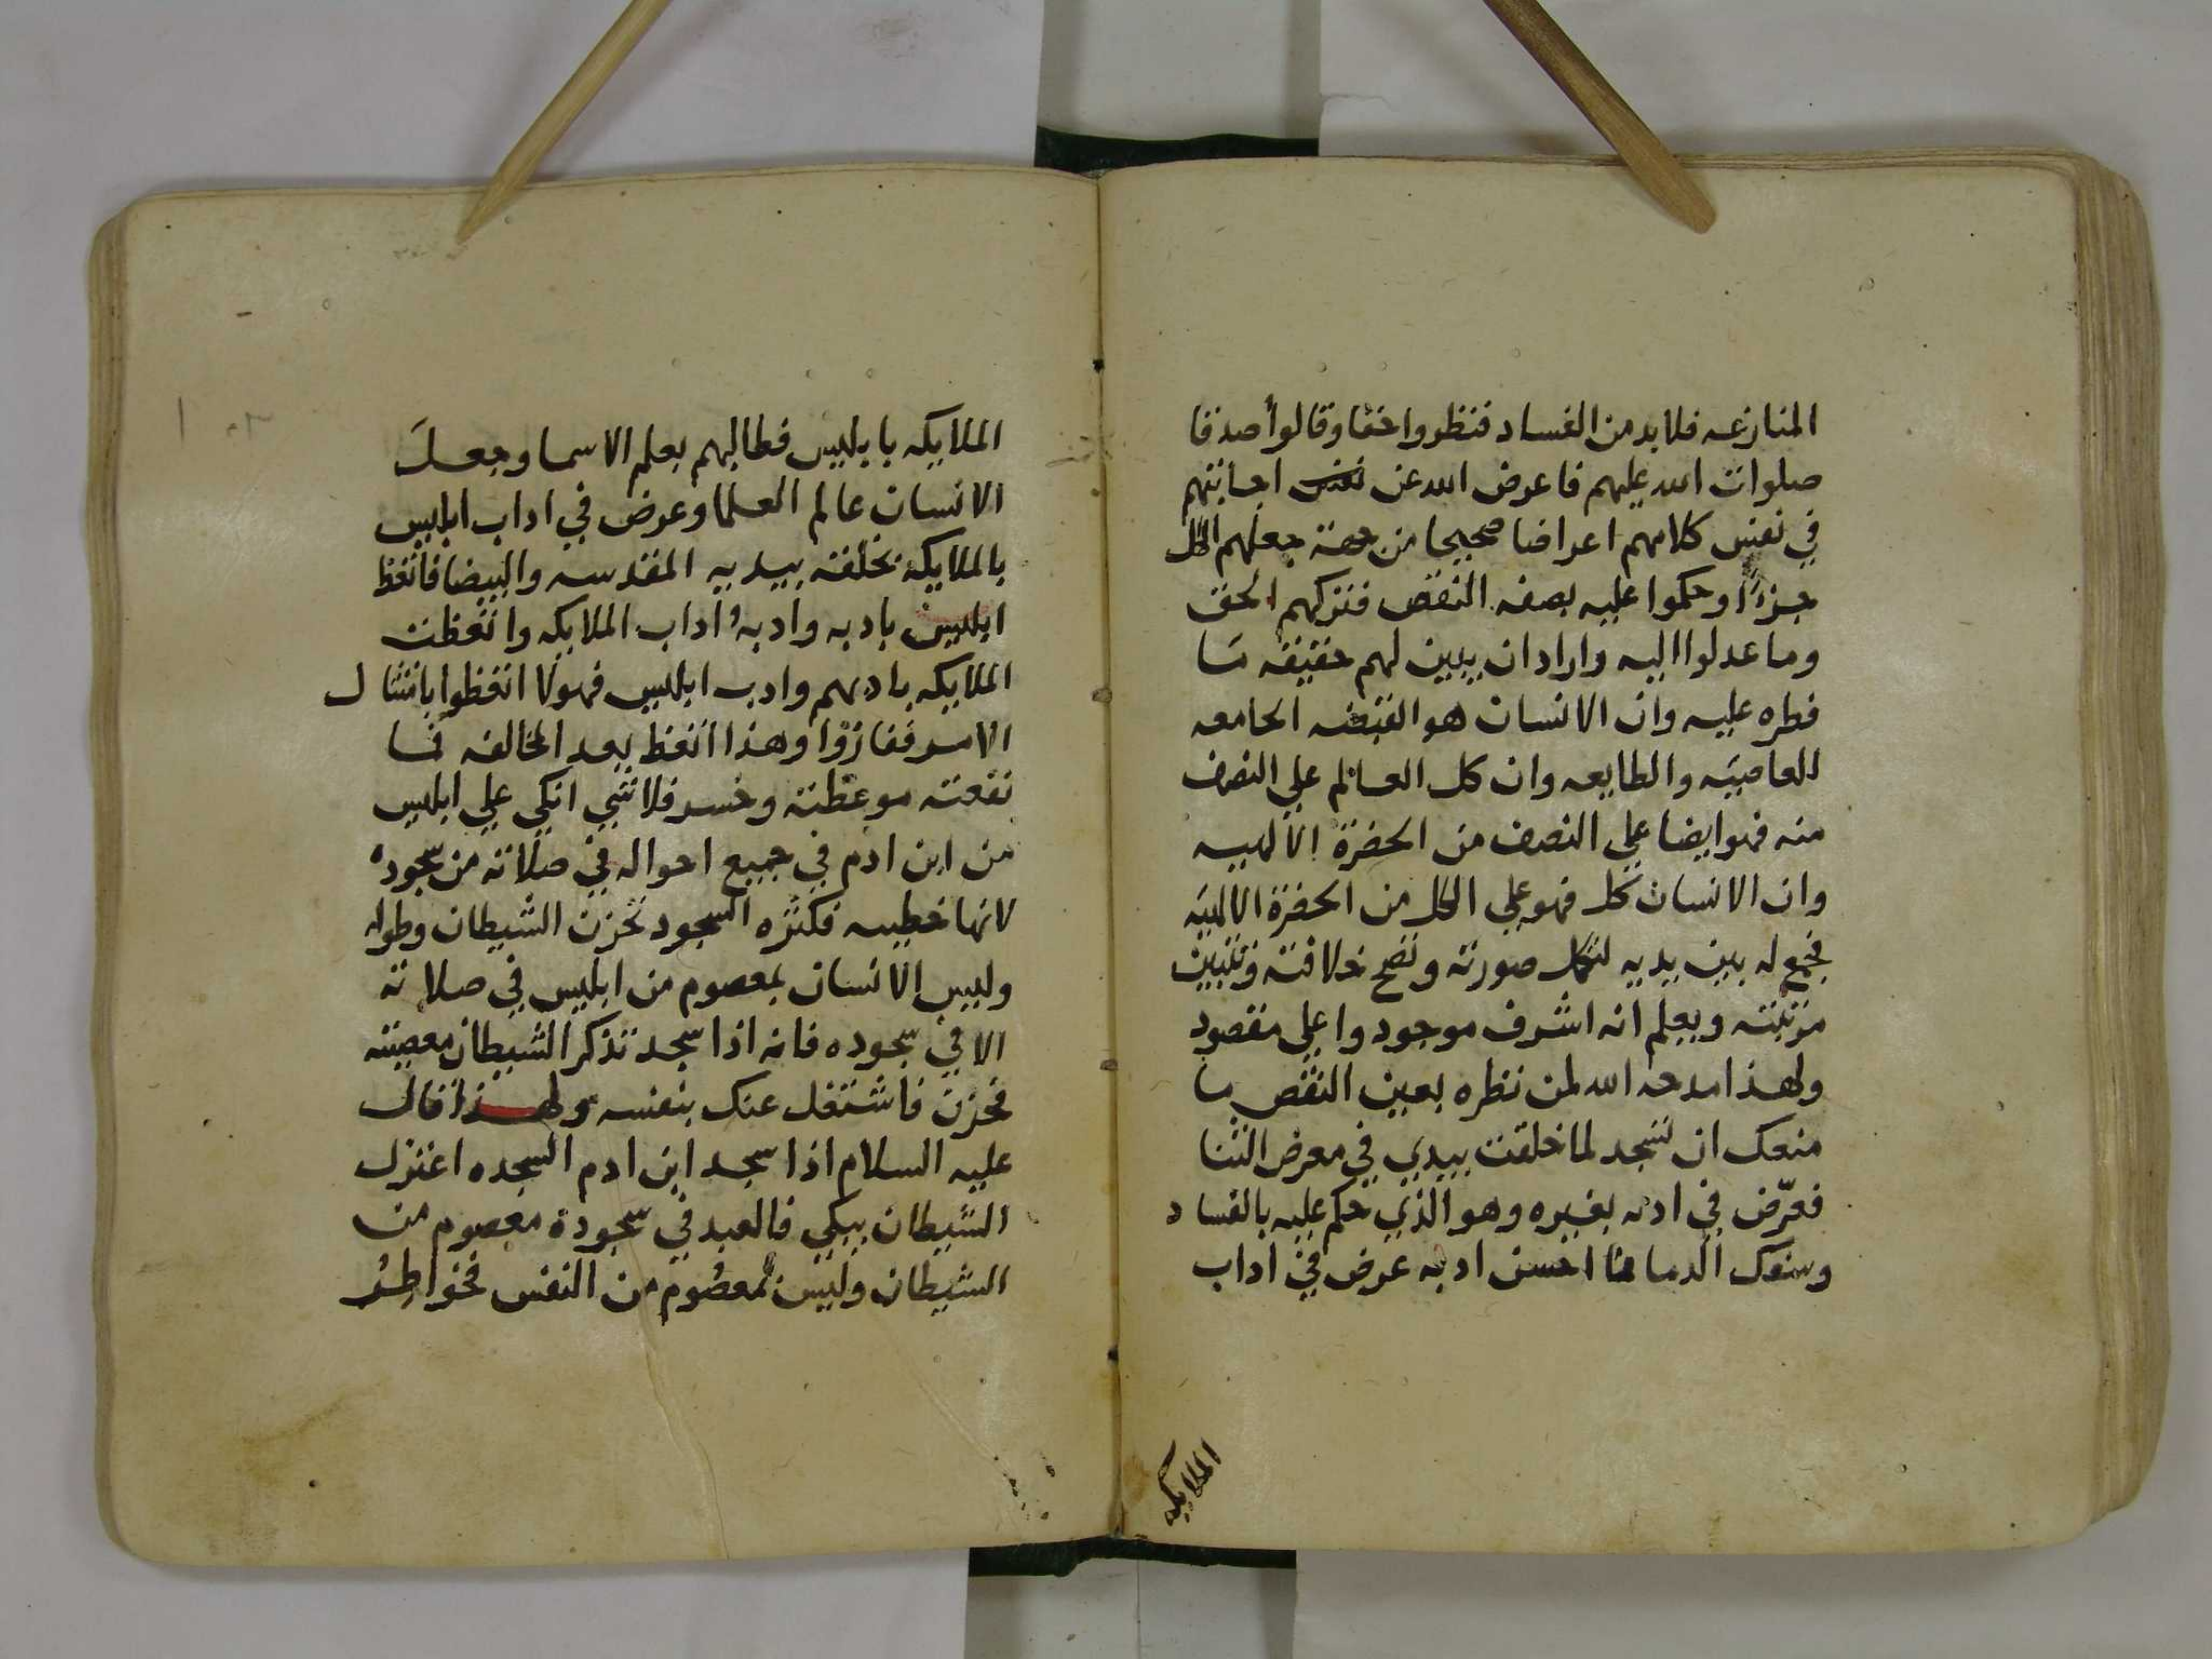 المنازعه فلابد من الفساد فنظروا حقا وقالوا صدقا
صلوات الله عليهم فاعرض الله عن نفس اجابتهم
في نفس كلامهم اعراضا صحيحا من جهة جعلهم الكل
جزءًا وحكموا عليه بصفه النقص فتركهم الحق
وما عدلوا اليه واراد ان يبين لهم حقيقه مَا
فطره عليه وان الانسان هو القبضه الجامعه
للعاصيَه والطايعه وان كل العالم علي النصف
منه فهو ايضا علي النصف من الحضرة الالهيه
وان الانسان كل فهو علي الكل من الحضرة الالهيَه
فجمع له بين يديه لتكمل صورته وتصح خلافته وتتبين
مرتبته ويعلم انه اشرف موجود واعلي مقصود
ولهذا مدحه الله لمن نظره بعين النقص ما
منعك ان تسجد لما خلقت بيدي في معرض الثنا
فعرّض في ادبه بغيره وهو الذي حكم عليه بالفساد
وسفك الدما فما احسن ادبه عرض في اداب
الملايكه
الملايكه بابليس فطالبهم بعلم الاسما وجعلَ
الانسان عالم العلما وعرض في اداب ابليس
بالملايكة بخلقه بيديه المقدسه والبيضا فاتعظ
ابليس بادبه وادبهُ اداب الملايكه واتعظت
الملايكه بادبهم وادب ابليس فهولا اتعظوا بامتثال
الامر ففازوا وهذا اتعظ بعد المخالفه فما
نفعته موعظته وخسر فلا شي انكي علي ابليس
من ابن ادم في جميع احواله في صلاته من سجوده
لانها خطييه فكثره السجود تحزن الشيطان وطوله
وليس الانسان بمعصوم من ابليس في صلاته
الا في سجوده فانه اذا سجد تذكر الشيطان معصيته
فحزن فاشتغل عنك بنفسه ولهذا قال
عليه السلام اذا سجد ابن ادم السجده اعتزل
الشيطان يبكي فالعبد في سجودة معصوم من
الشيطان وليس بمعصُوم من النفس فخواطرُ